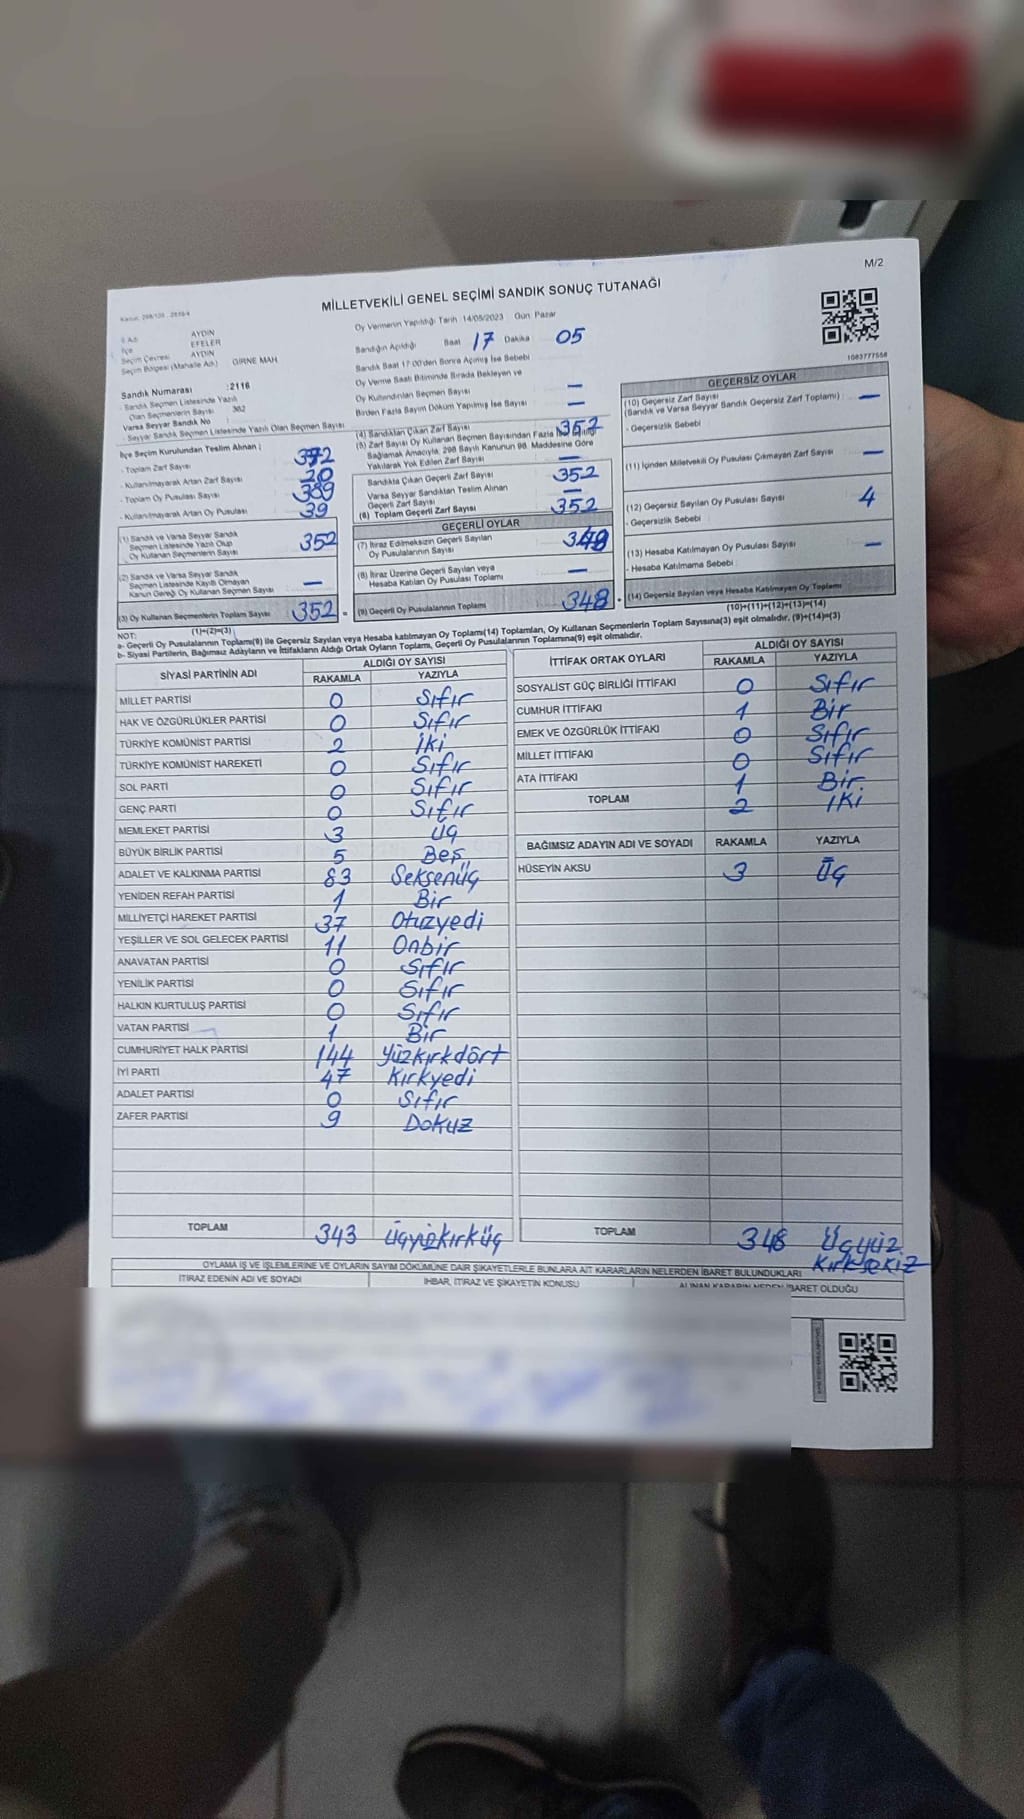 M/2
MİLLETVEKİLİ GENEL SEÇİMİ SANDIK SONUÇ TUTANAĞI
İl Adı AYDIN
İlçe EFELER
Seçim Çevresi AYDIN
Seçim Bölgesi (Mahalle Adı) GİRNE MAH
Sandık Numarası :2116
- Sandık Seçmen Listesinde Yazılı
Olan Seçmenlerin Sayısı 382
Varsa Seyyar Sandık No :
- Seyyar Sandık Seçmen Listesinde Yazılı Olan Seçmen Sayısı
İlçe Seçim Kurulundan Teslim Alınan ;
- Toplam Zarf Sayısı 372
- Kullanılmayarak Artan Zarf Sayısı 20
- Toplam Oy Pusulası Sayısı 389
- Kullanılmayarak Artan Oy Pusulası 39
(1) Sandık ve Varsa Seyyar Sandık
Seçmen Listesinde Yazılı Olup
Oy Kullanan Seçmenlerin Sayısı 352
(2) Sandık ve Varsa Seyyar Sandık
Seçmen Listesinde Kayıtlı Olmayan
Kanun Gereği Oy Kullanan Seçmen Sayısı —
(3) Oy Kullanan Seçmenlerin Toplam Sayısı 352 =
(1)+(2)=(3)
Oy Vermenin Yapıldığı Tarih : 14/05/2023 Gün: Pazar
Sandığın Açıldığı Saat 17 Dakika 05
Sandık Saat 17:00'den Sonra Açılmış İse Sebebi
Oy Verme Saati Bitiminde Sırada Bekleyen ve
Oy Kullandırılan Seçmen Sayısı —
Birden Fazla Sayım Döküm Yapılmış İse Sayısı —
(4) Sandıktan Çıkan Zarf Sayısı 352
(5) Zarf Sayısı Oy Kullanan Seçmen Sayısından Fazla İse
Sağlamak Amacıyla, 298 Sayılı Kanunun 98. Maddesine Göre
Yakılarak Yok Edilen Zarf Sayısı —
Sandıkta Çıkan Geçerli Zarf Sayısı 352
Varsa Seyyar Sandıktan Teslim Alınan
Geçerli Zarf Sayısı —
(6) Toplam Geçerli Zarf Sayısı 352
GEÇERLİ OYLAR
(7) İtiraz Edilmeksizin Geçerli Sayılan
Oy Pusulalarının Sayısı 348
(8) İtiraz Üzerine Geçerli Sayılan veya
Hesaba Katılan Oy Pusulası Toplamı —
(9) Geçerli Oy Pusulalarının Toplamı 348 +
1083777558
GEÇERSİZ OYLAR
(10) Geçersiz Zarf Sayısı
(Sandık ve Varsa Seyyar Sandık Geçersiz Zarf Toplamı) : —
- Geçersizlik Sebebi
(11) İçinden Milletvekili Oy Pusulası Çıkmayan Zarf Sayısı —
(12) Geçersiz Sayılan Oy Pusulası Sayısı 4
- Geçersizlik Sebebi :
(13) Hesaba Katılmayan Oy Pusulası Sayısı —
- Hesaba Katılmama Sebebi :
(14) Geçersiz Sayılan veya Hesaba Katılmayan Oy Toplamı
(10)+(11)+(12)+(13)=(14)
NOT:
a- Geçerli Oy Pusulalarının Toplamı(9) ile Geçersiz Sayılan veya Hesaba katılmayan Oy Toplamı(14) Toplamları, Oy Kullanan Seçmenlerin Toplam Sayısına(3) eşit olmalıdır. (9)+(14)=(3)
b- Siyasi Partilerin, Bağımsız Adayların ve İttifakların Aldığı Ortak Oyların Toplamı, Geçerli Oy Pusulalarının Toplamına(9) eşit olmalıdır.
SİYASİ PARTİNİN ADI ALDIĞI OY SAYISI
RAKAMLA YAZIYLA
MİLLET PARTİSİ 0 Sıfır
HAK VE ÖZGÜRLÜKLER PARTİSİ 0 Sıfır
TÜRKİYE KOMÜNİST PARTİSİ 2 İki
TÜRKİYE KOMÜNİST HAREKETİ 0 Sıfır
SOL PARTİ 0 Sıfır
GENÇ PARTİ 0 Sıfır
MEMLEKET PARTİSİ 3 Üç
BÜYÜK BİRLİK PARTİSİ 5 Beş
ADALET VE KALKINMA PARTİSİ 83 Seksenüç
YENİDEN REFAH PARTİSİ 1 Bir
MİLLİYETÇİ HAREKET PARTİSİ 37 Otuzyedi
YEŞİLLER VE SOL GELECEK PARTİSİ 11 Onbir
ANAVATAN PARTİSİ 0 Sıfır
YENİLİK PARTİSİ 0 Sıfır
HALKIN KURTULUŞ PARTİSİ 0 Sıfır
VATAN PARTİSİ 1 Bir
CUMHURİYET HALK PARTİSİ 144 Yüzkırkdört
İYİ PARTİ 47 Kırkyedi
ADALET PARTİSİ 0 Sıfır
ZAFER PARTİSİ 9 Dokuz
TOPLAM 343 Üçyüzkırküç
İTTİFAK ORTAK OYLARI ALDIĞI OY SAYISI
RAKAMLA YAZIYLA
SOSYALİST GÜÇ BİRLİĞİ İTTİFAKI 0 Sıfır
CUMHUR İTTİFAKI 1 Bir
EMEK VE ÖZGÜRLÜK İTTİFAKI 0 Sıfır
MİLLET İTTİFAKI 0 Sıfır
ATA İTTİFAKI 1 Bir
TOPLAM 2 İki
BAĞIMSIZ ADAYIN ADI VE SOYADI RAKAMLA YAZIYLA
HÜSEYİN AKSU 3 Üç
TOPLAM 348 Üçyüz
Kırksekiz
OYLAMA İŞ VE İŞLEMLERİNE VE OYLARIN SAYIM DÖKÜMÜNE DAİR ŞİKAYETLERLE BUNLARA AİT KARARLARIN NELERDEN İBARET BULUNDUKLARI
İTİRAZ EDENİN ADI VE SOYADI İHBAR, İTİRAZ VE ŞİKAYETİN KONUSU ALINAN KARARIN NEDEN İBARET OLDUĞU